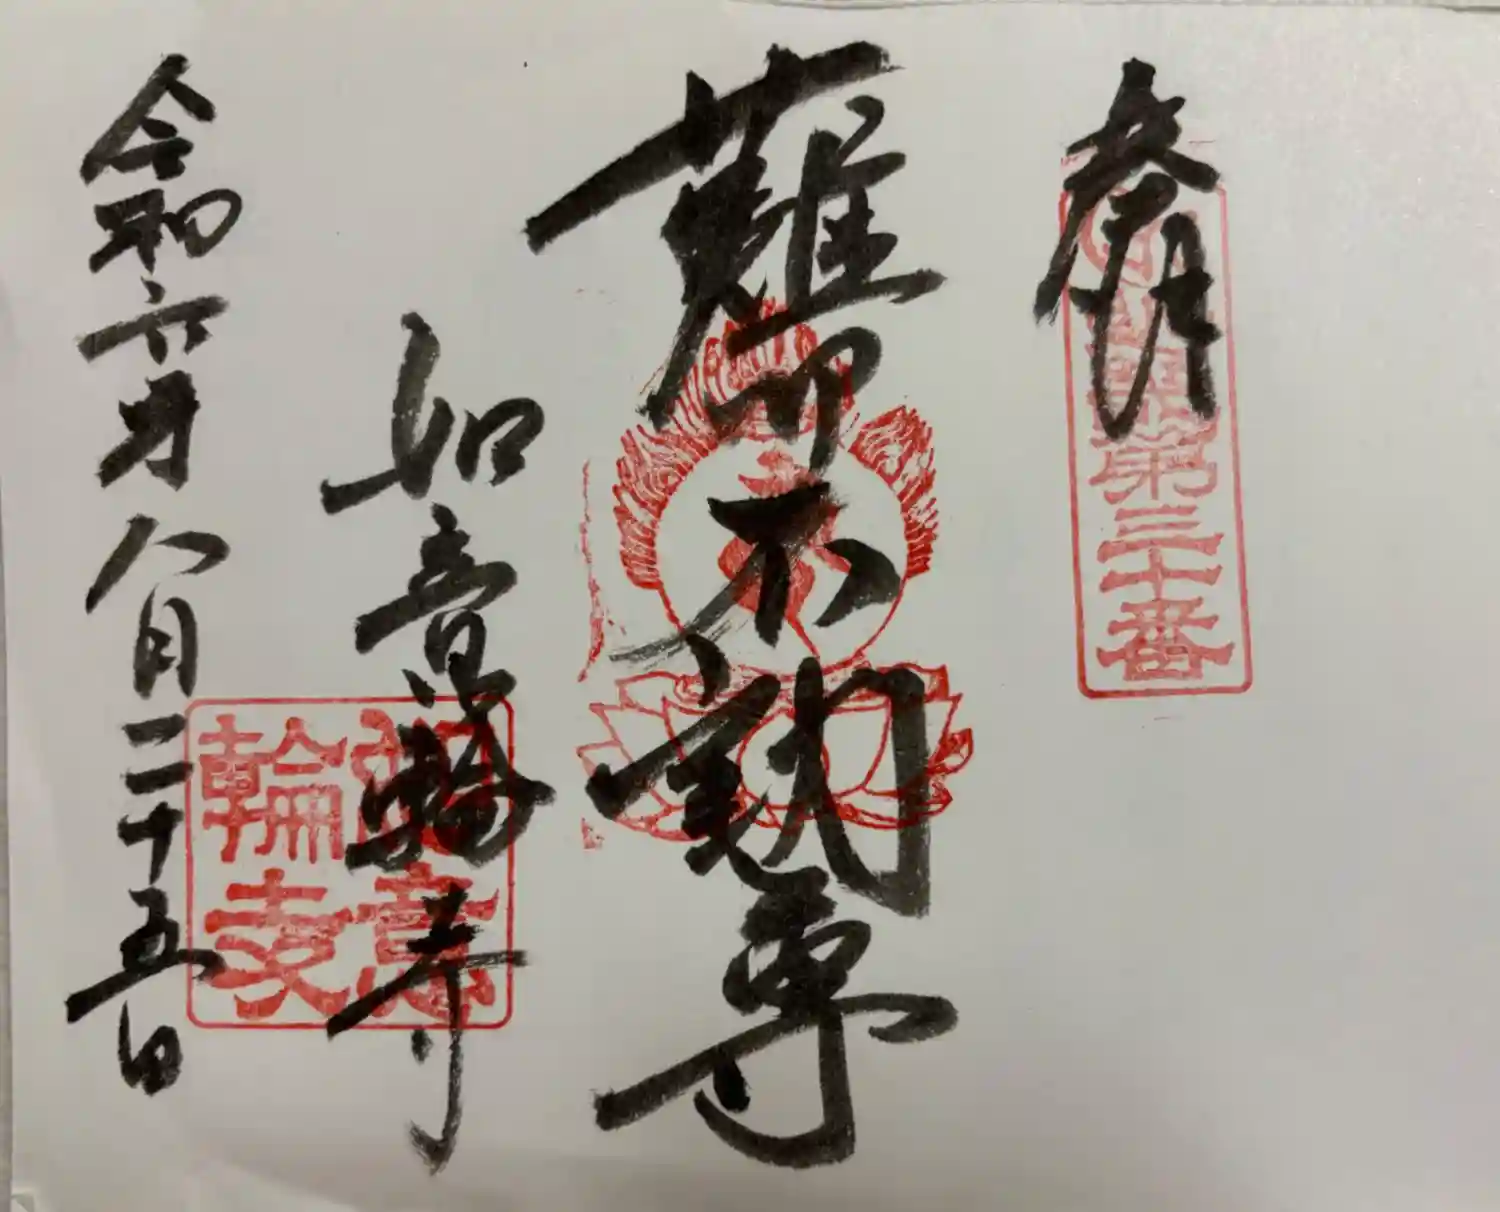 奉拝
第三十番
難切不動尊
如意輪寺
如意
輪寺
令和六年八月二十五日